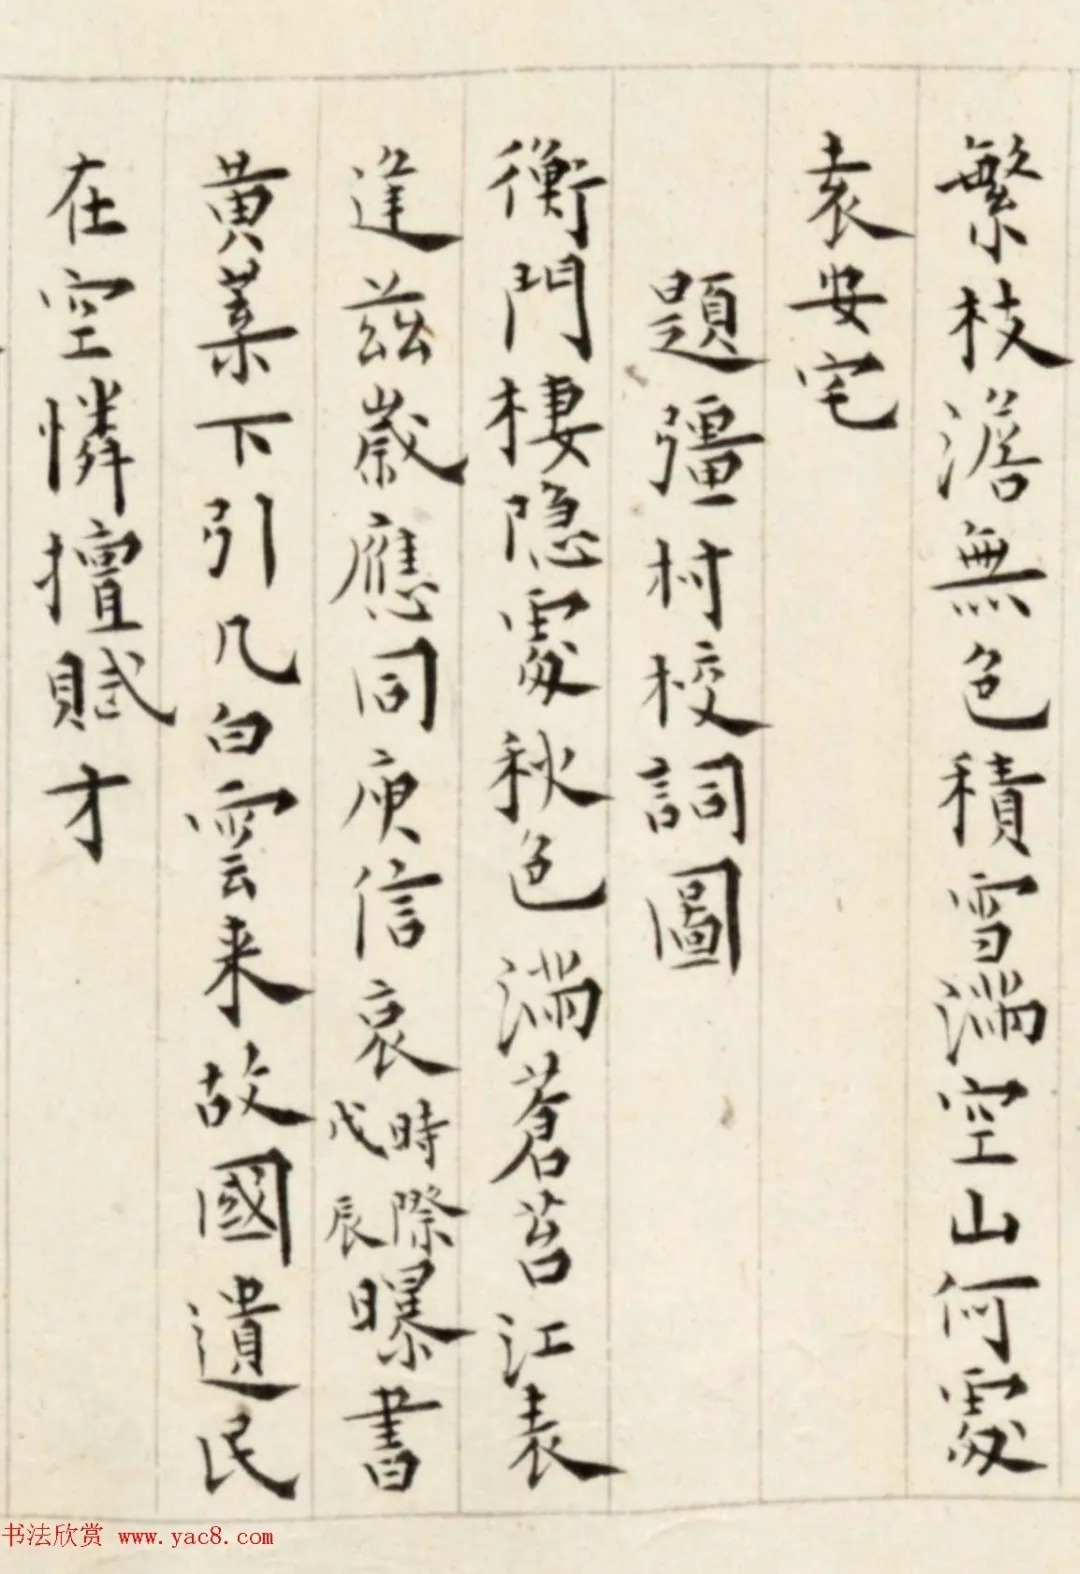 繁枝澹無色積雪滿空山何處
袁安宅
題彊村校詞圖
衡門棲隱處秋色滿蒼苔江表
逢茲歲應同庾信哀時際戊辰曝書
黃葉下引几白雲来故國遺民
在空憐擅賦才
书法欣赏 www.yac8.com